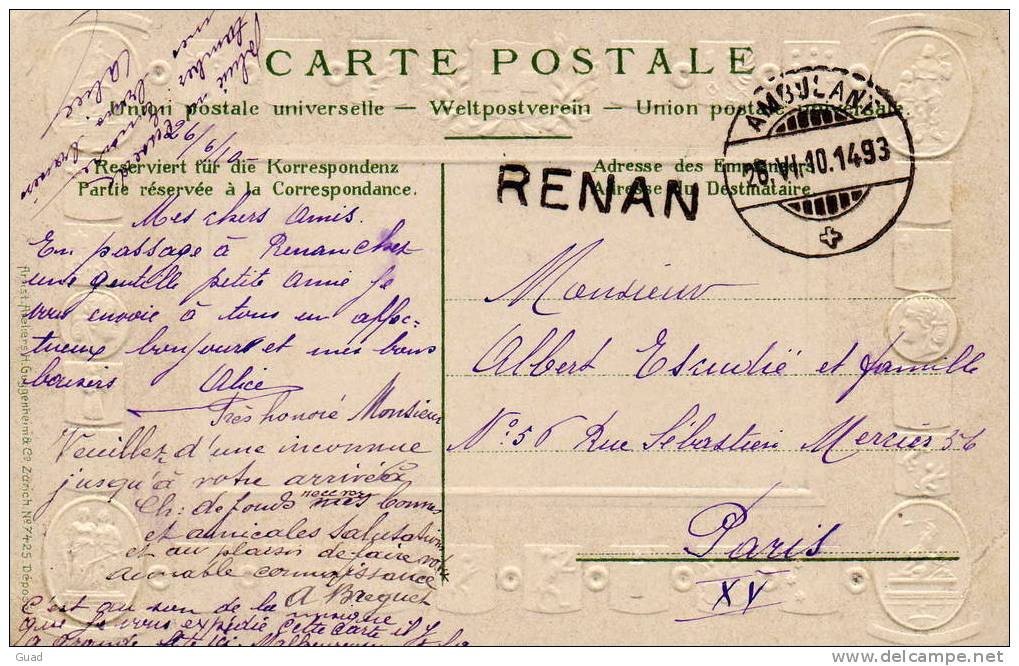 CARTE POSTALE
Union postale universelle — Weltpostverein — Union postale universale.
AMBULANT
26.VI.10.1493
RENAN
Reserviert für die Korrespondenz
Partie réservée à la Correspondance.
Adresse des Empfängers.
Adresse du Destinataire.
26/6/10
Mes chers Amis.
En passage à Renan chez
une gentille petite amie je
vous envoie à tous un affec-
tueux bonjour et mes bons
baisers Alice
Très honoré Monsieur
Veuillez d'une inconnue
jusqu'à votre arrivée à
Ch: de fonds recevoir mes bonnes
et amicales salutations
et au plaisir de faire votre
aimable connaissance
A Breguet
C'est au son de la musique
que je vous expédie cette carte il y
a grande fête ici. Malheureusement
Monsieur
Albert Escudié et famille
No 56 Rue Sébastien Mercier 56
Paris
XV
Artist. Ateliers H. Guggenheim & Co. Zürich. No 7425 Dépos
Guad
delcampe.net